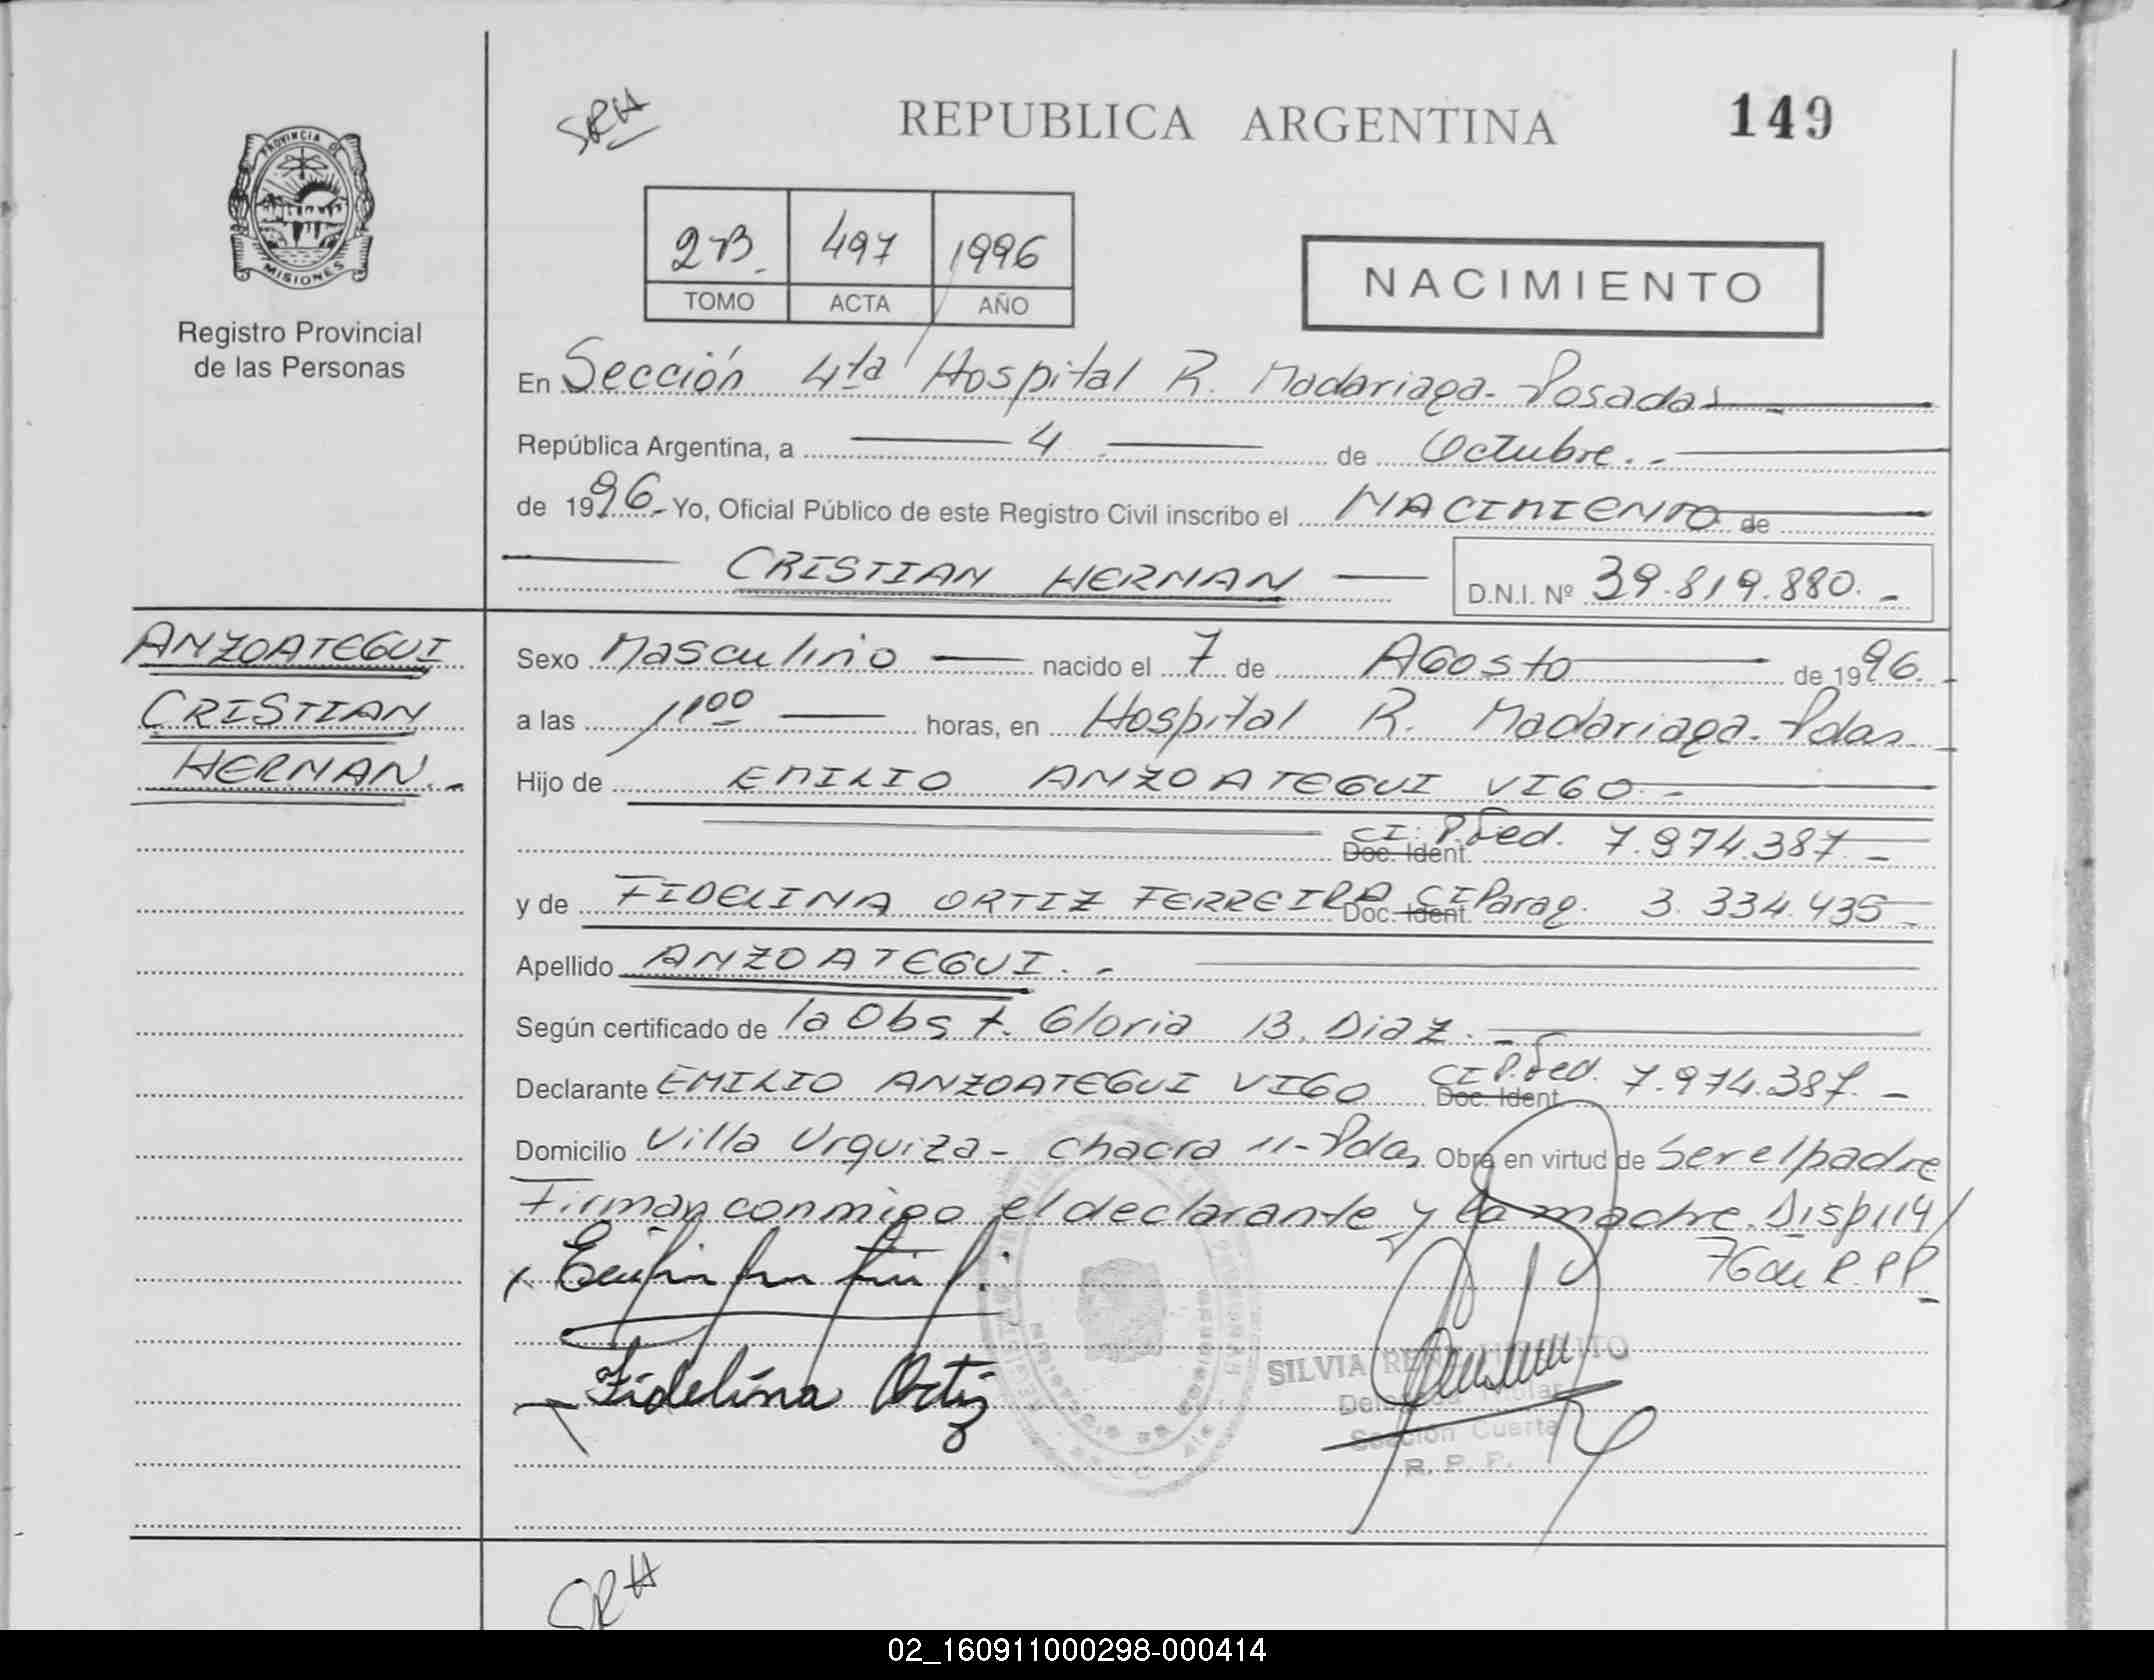 SRH
REPUBLICA ARGENTINA
149
PROVINCIA DE
MISIONES
Registro Provincial
de las Personas
2B. 497 1996
TOMO ACTA AÑO
NACIMIENTO
En Sección 4ta Hospital R. Madariaga - Posadas -
República Argentina, a 4 de Octubre.-
de 1996.- Yo, Oficial Público de este Registro Civil inscribo el NACIMIENTO de
CRISTIAN HERNAN D.N.I. Nº 39.819.880.-
ANZOATEGUI
CRISTIAN
HERNAN.-
Sexo Masculino nacido el 7 de Agosto de 1996.-
a las 11 00 horas, en Hospital R. Madariaga - Pdas.-
Hijo de EMILIO ANZOATEGUI VIGO.-
CI: P. Fed. Doc. Ident. 7.974.387.-
y de FIDELINA ORTIZ FERREIRA CI Parag. Doc. Ident. 3.334.435.-
Apellido ANZOATEGUI.-
Según certificado de la Obst. Gloria B. Diaz.-
Declarante EMILIO ANZOATEGUI VIGO CI P. Fed. Doc. Ident. 7.974.387.-
Domicilio Villa Urquiza - Chacra 11 - Pdas Obra en virtud de Ser el padre
Firman conmigo el declarante y la madre. Disp 114/
76 de R.P.P.-
Fidelina Ortiz
SILVIA
Sección Cuarta
R. P. P.
SRH
02_160911000298-000414